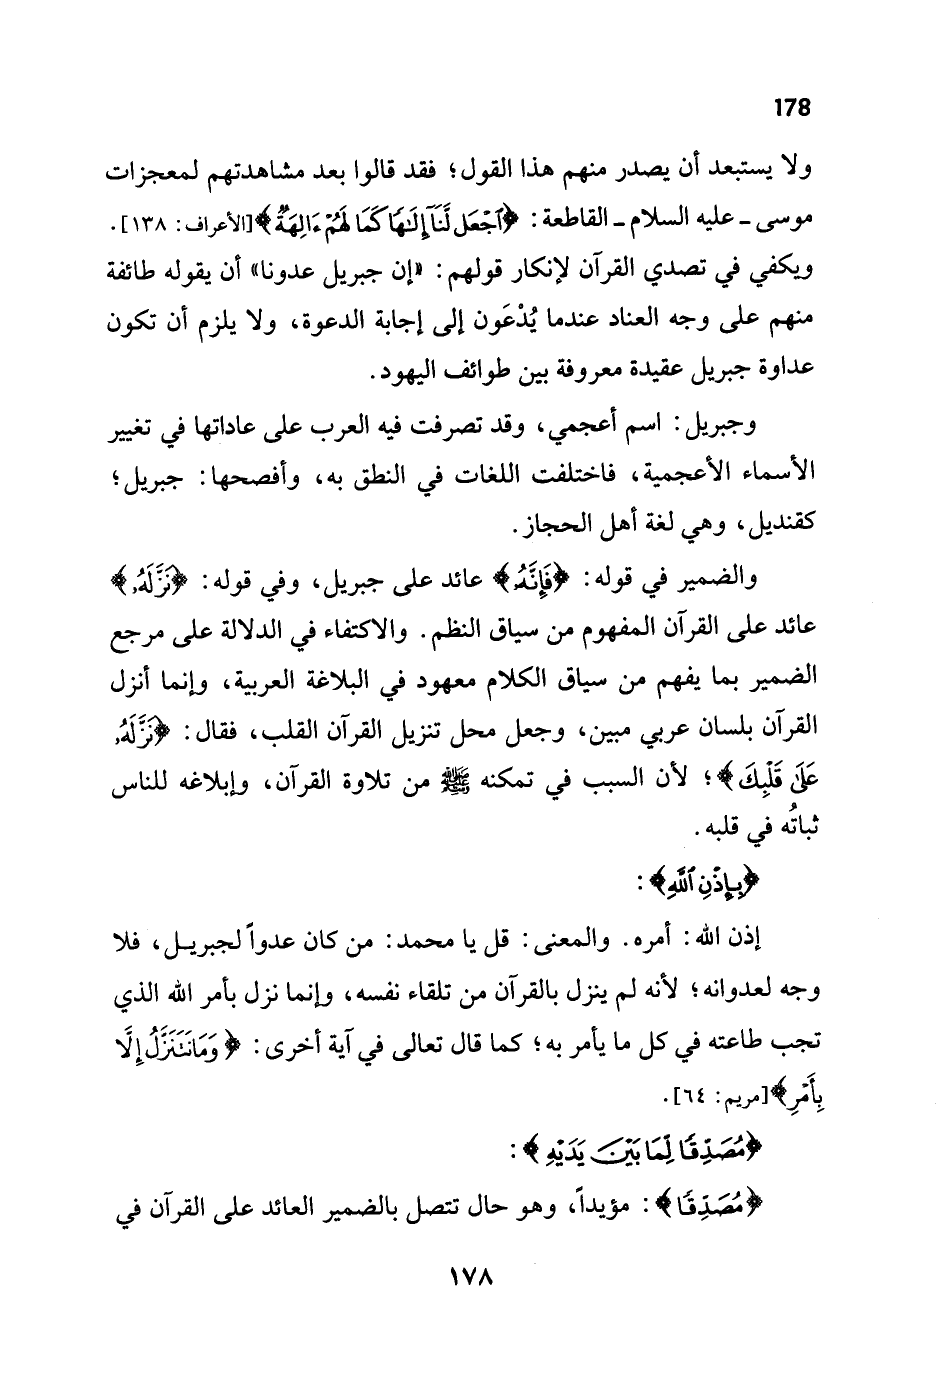 178
ولا يستبعد أن يصدر منهم هذا القول؛ فقد قالوا بعد مشاهدتهم لمعجزات
موسى ـ عليه السلام ـ القاطعة: ﴿ٱجْعَل لَّنَآ إِلَٰهًا كَمَا لَهُمْ ءَالِهَةٌ﴾ [الأعراف: ١٣٨].
ويكفي في تصدي القرآن لإنكار قولهم: «إن جبريل عدونا» أن يقوله طائفة
منهم على وجه العناد عندما يُدْعَون إلى إجابة الدعوة، ولا يلزم أن تكون
عداوة جبريل عقيدة معروفة بين طوائف اليهود.
وجبريل: اسم أعجمي، وقد تصرفت فيه العرب على عاداتها في تغيير
الأسماء الأعجمية، فاختلفت اللغات في النطق به، وأفصحها: جبريل؛
كقنديل، وهي لغة أهل الحجاز.
والضمير في قوله: ﴿فَإِنَّهُۥ﴾ عائد على جبريل، وفي قوله: ﴿نَزَّلَهُۥ﴾
عائد على القرآن المفهوم من سياق النظم. والاكتفاء في الدلالة على مرجع
الضمير بما يفهم من سياق الكلام معهود في البلاغة العربية، وإنما أنزل
القرآن بلسان عربي مبين، وجعل محل تنزيل القرآن القلب، فقال: ﴿نَزَّلَهُۥ
عَلَىٰ قَلْبِكَ﴾؛ لأن السبب في تمكنه ﷺ من تلاوة القرآن، وإبلاغه للناس
ثباتُه في قلبه.
﴿بِإِذْنِ ٱللَّهِ﴾:
إذن الله: أمره. والمعنى: قل يا محمد: من كان عدواً لجبريل، فلا
وجه لعدوانه؛ لأنه لم ينزل بالقرآن من تلقاء نفسه، وإنما نزل بأمر الله الذي
تجب طاعته في كل ما يأمر به؛ كما قال تعالى في آية أخرى: ﴿وَمَا نَتَنَزَّلُ إِلَّا
بِأَمْرِ﴾ [مريم: ٦٤].
﴿مُصَدِّقًا لِّمَا بَيْنَ يَدَيْهِ﴾:
﴿مُصَدِّقًا﴾: مؤيداً، وهو حال تتصل بالضمير العائد على القرآن في
١٧٨